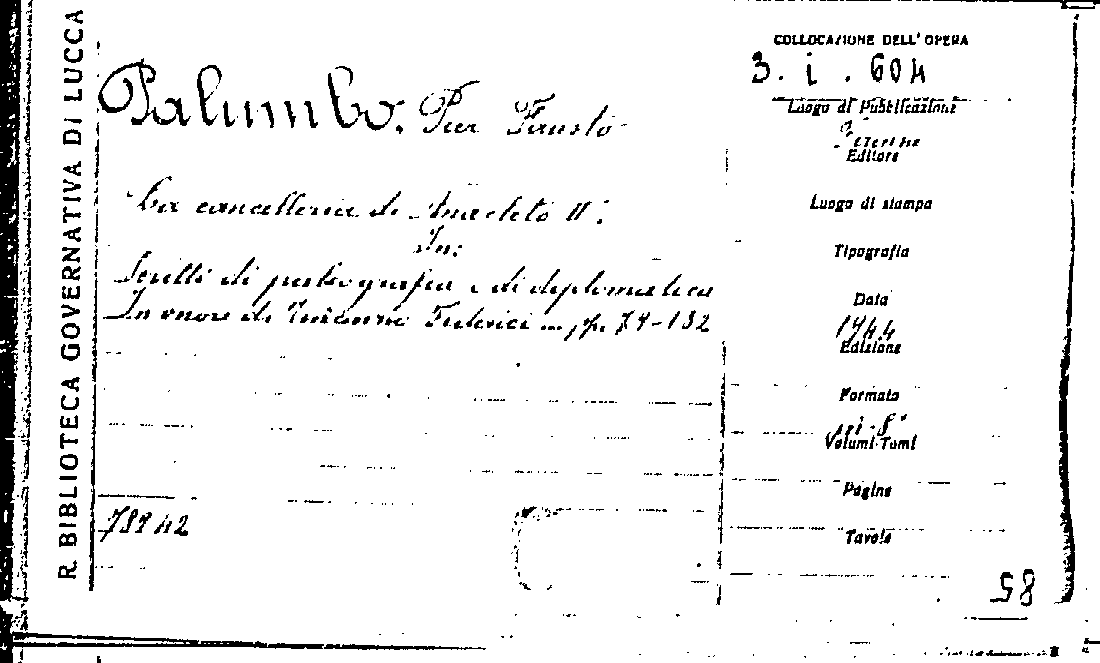 R. BIBLIOTECA GOVERNATIVA DI LUCCA
Palumbo, Pier Fausto
La cancelleria di Anacleto II°.
In:
Scritti di paleografia e di diplomatica
In onore di Vincenzo Federici pp. 79-132
78242
COLLOCAZIONE DELL'OPERA
3. i. 604
Luogo di Pubblicazione
Firenze
Editore
Luogo di stampa
Tipografia
Data
1944
Edizione
Formato
in-8°
Volumi-Tomi
Pagine
Tavole
58